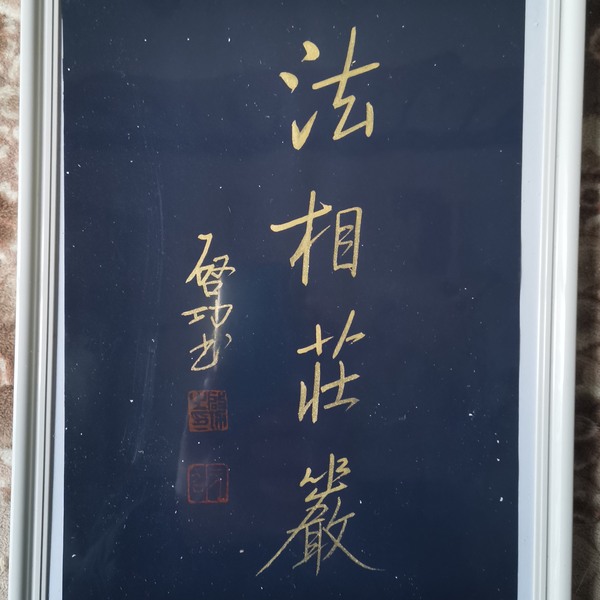 法相莊嚴
啓功书